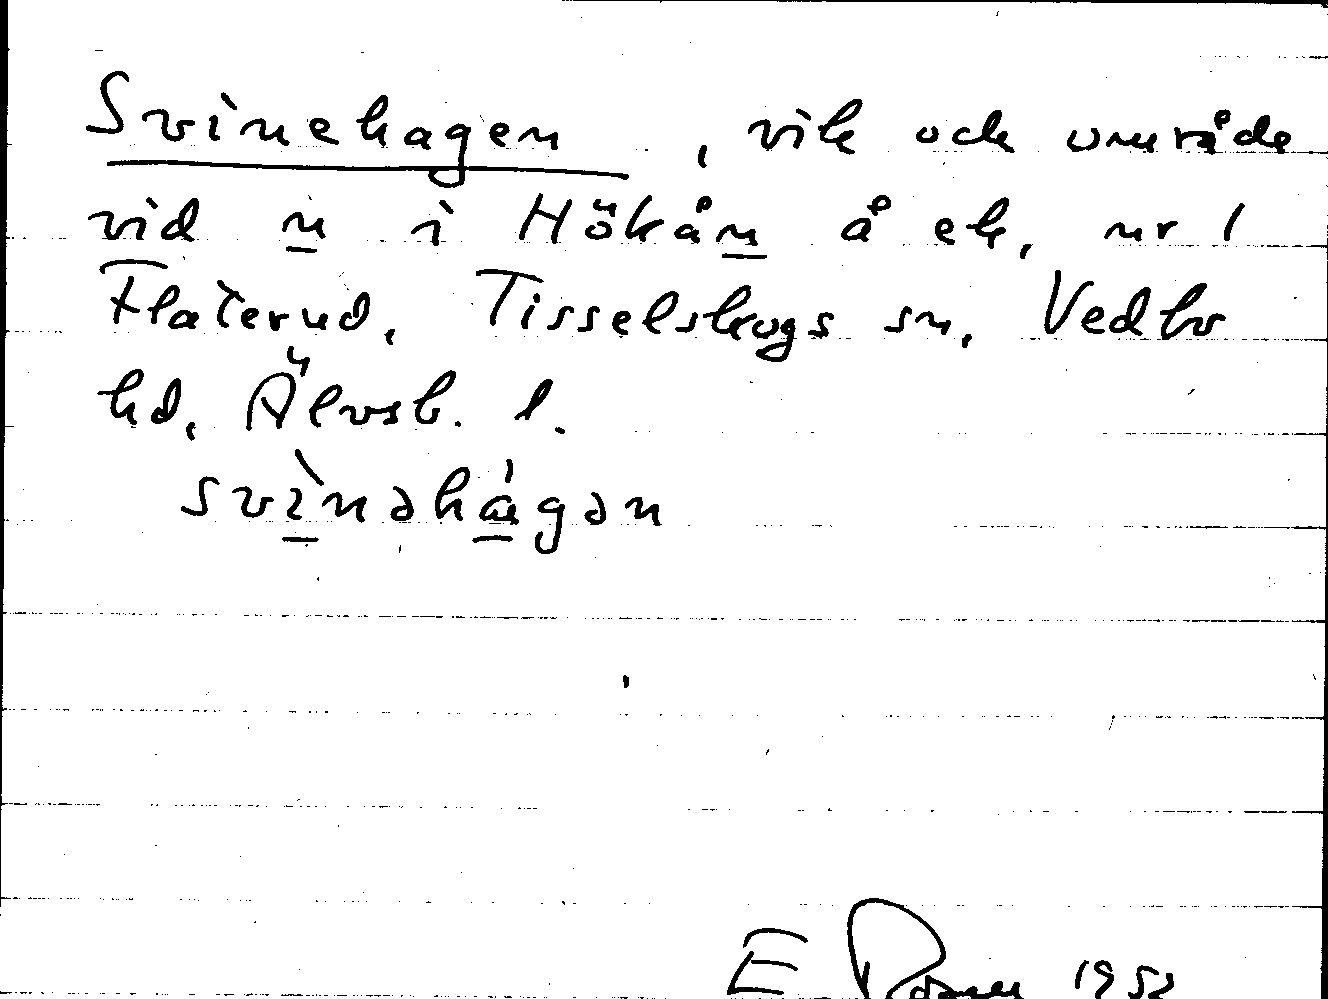 Svinehagen, vik och område
vid n i Hökån å ek, nr 1
Flaterud, Tisselskogs sn, Vedbo
hd, Älvsb. l.
svìnəhágən
E 1952